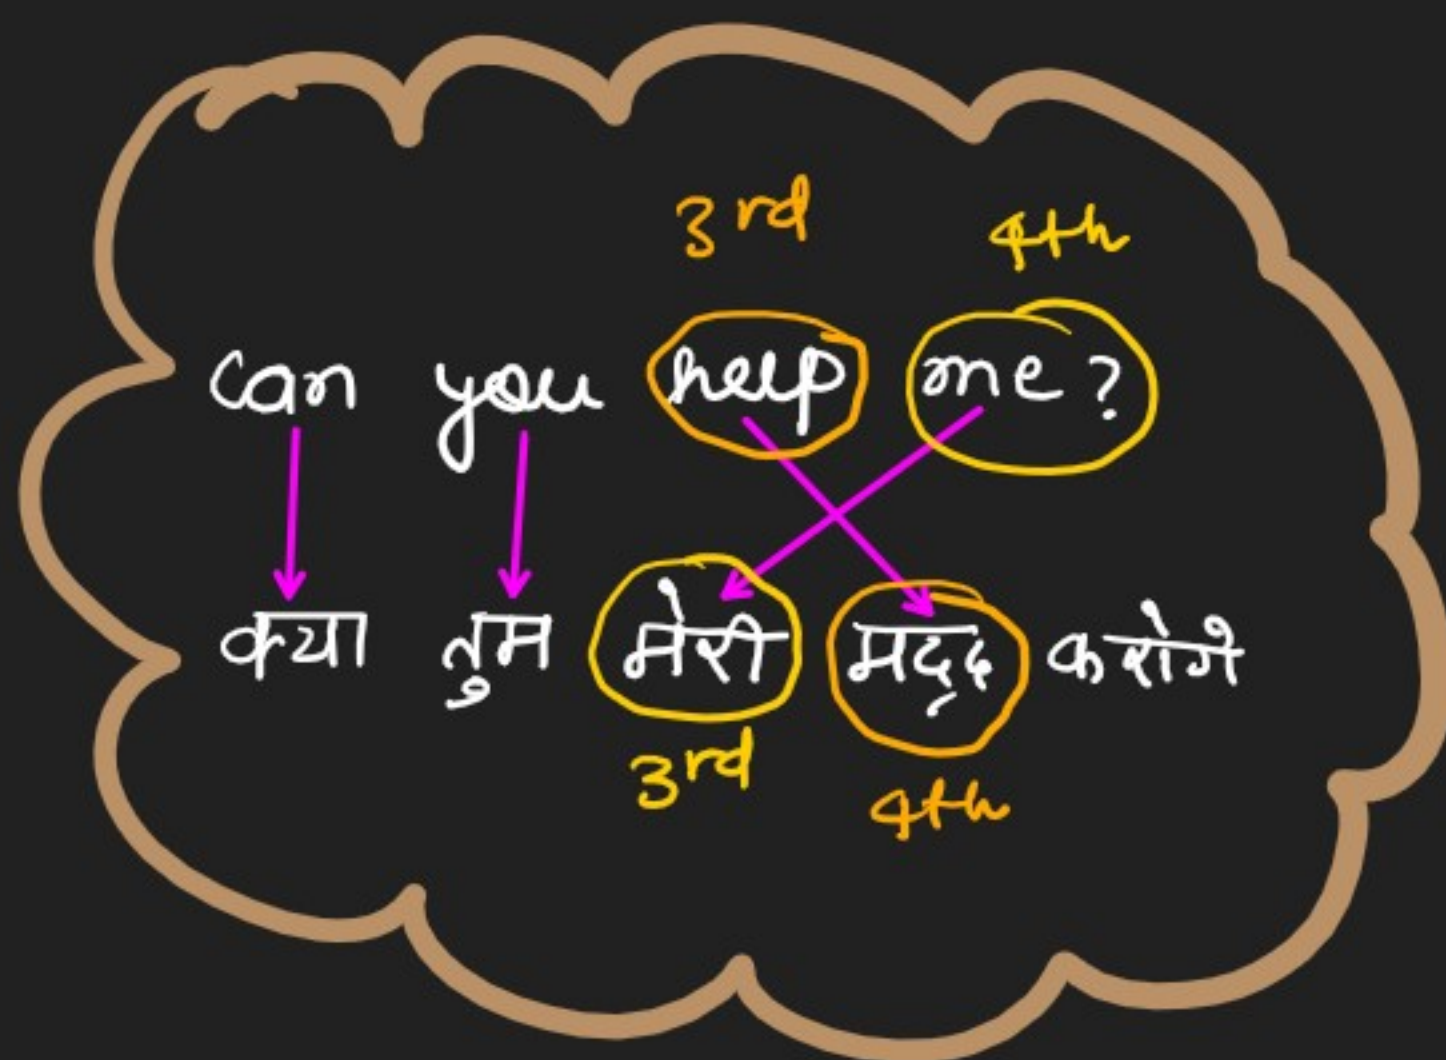 3rd 4th
can you help me?
क्या तुम मेरी मदद करोगे
3rd 4th